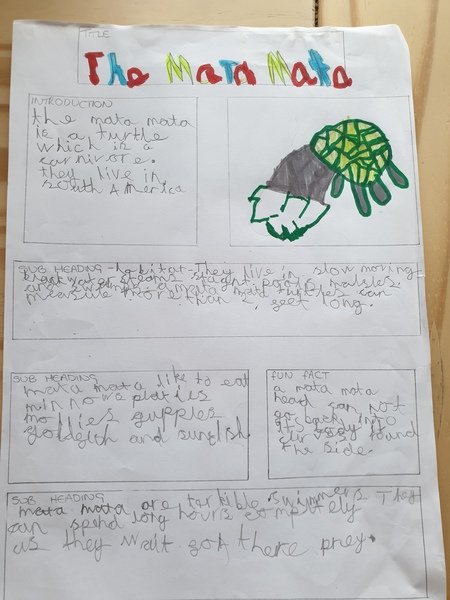 TITLE
The Mata Mata
INTRODUCTION
the mata mata
is a turtle
which is a
carnivore.
they live in
South America
SUB HEADING - habitat - They live in slow moving
blackwater streams
and swamps. a mata mata turtles can
measure more than 2 feet long.
SUB HEADING
mata mata like to eat
minnows platies
mollies guppies
goldfish and sunfish
FUN FACT
a mata mata
head can not
go back into
its body it
curves round
the side.
SUB HEADING
mata mata are terrible swimmers They
can spend long hours completely
as they wait for there prey.